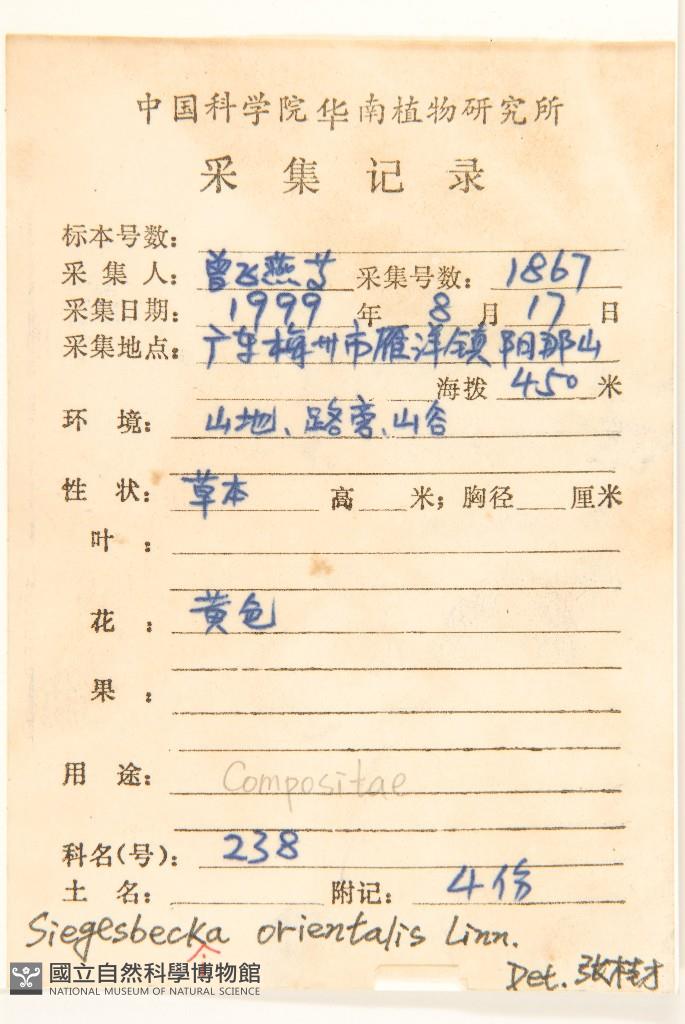 中国科学院华南植物研究所
采集记录
标本号数:
采集人: 曾飞燕等 采集号数: 1867
采集日期: 1999 年 8 月 17 日
采集地点: 广东梅州市雁洋镇阴那山
海拨 450 米
环境: 山地、路旁、山谷
性状: 草本 高 米; 胸径 厘米
叶:
花: 黄色
果:
用途:
Compositae
科名(号): 238
土名: 附记: 4份
Siegesbecka orientalis Linn.
Det. 张桂才
國立自然科學博物館
NATIONAL MUSEUM OF NATURAL SCIENCE